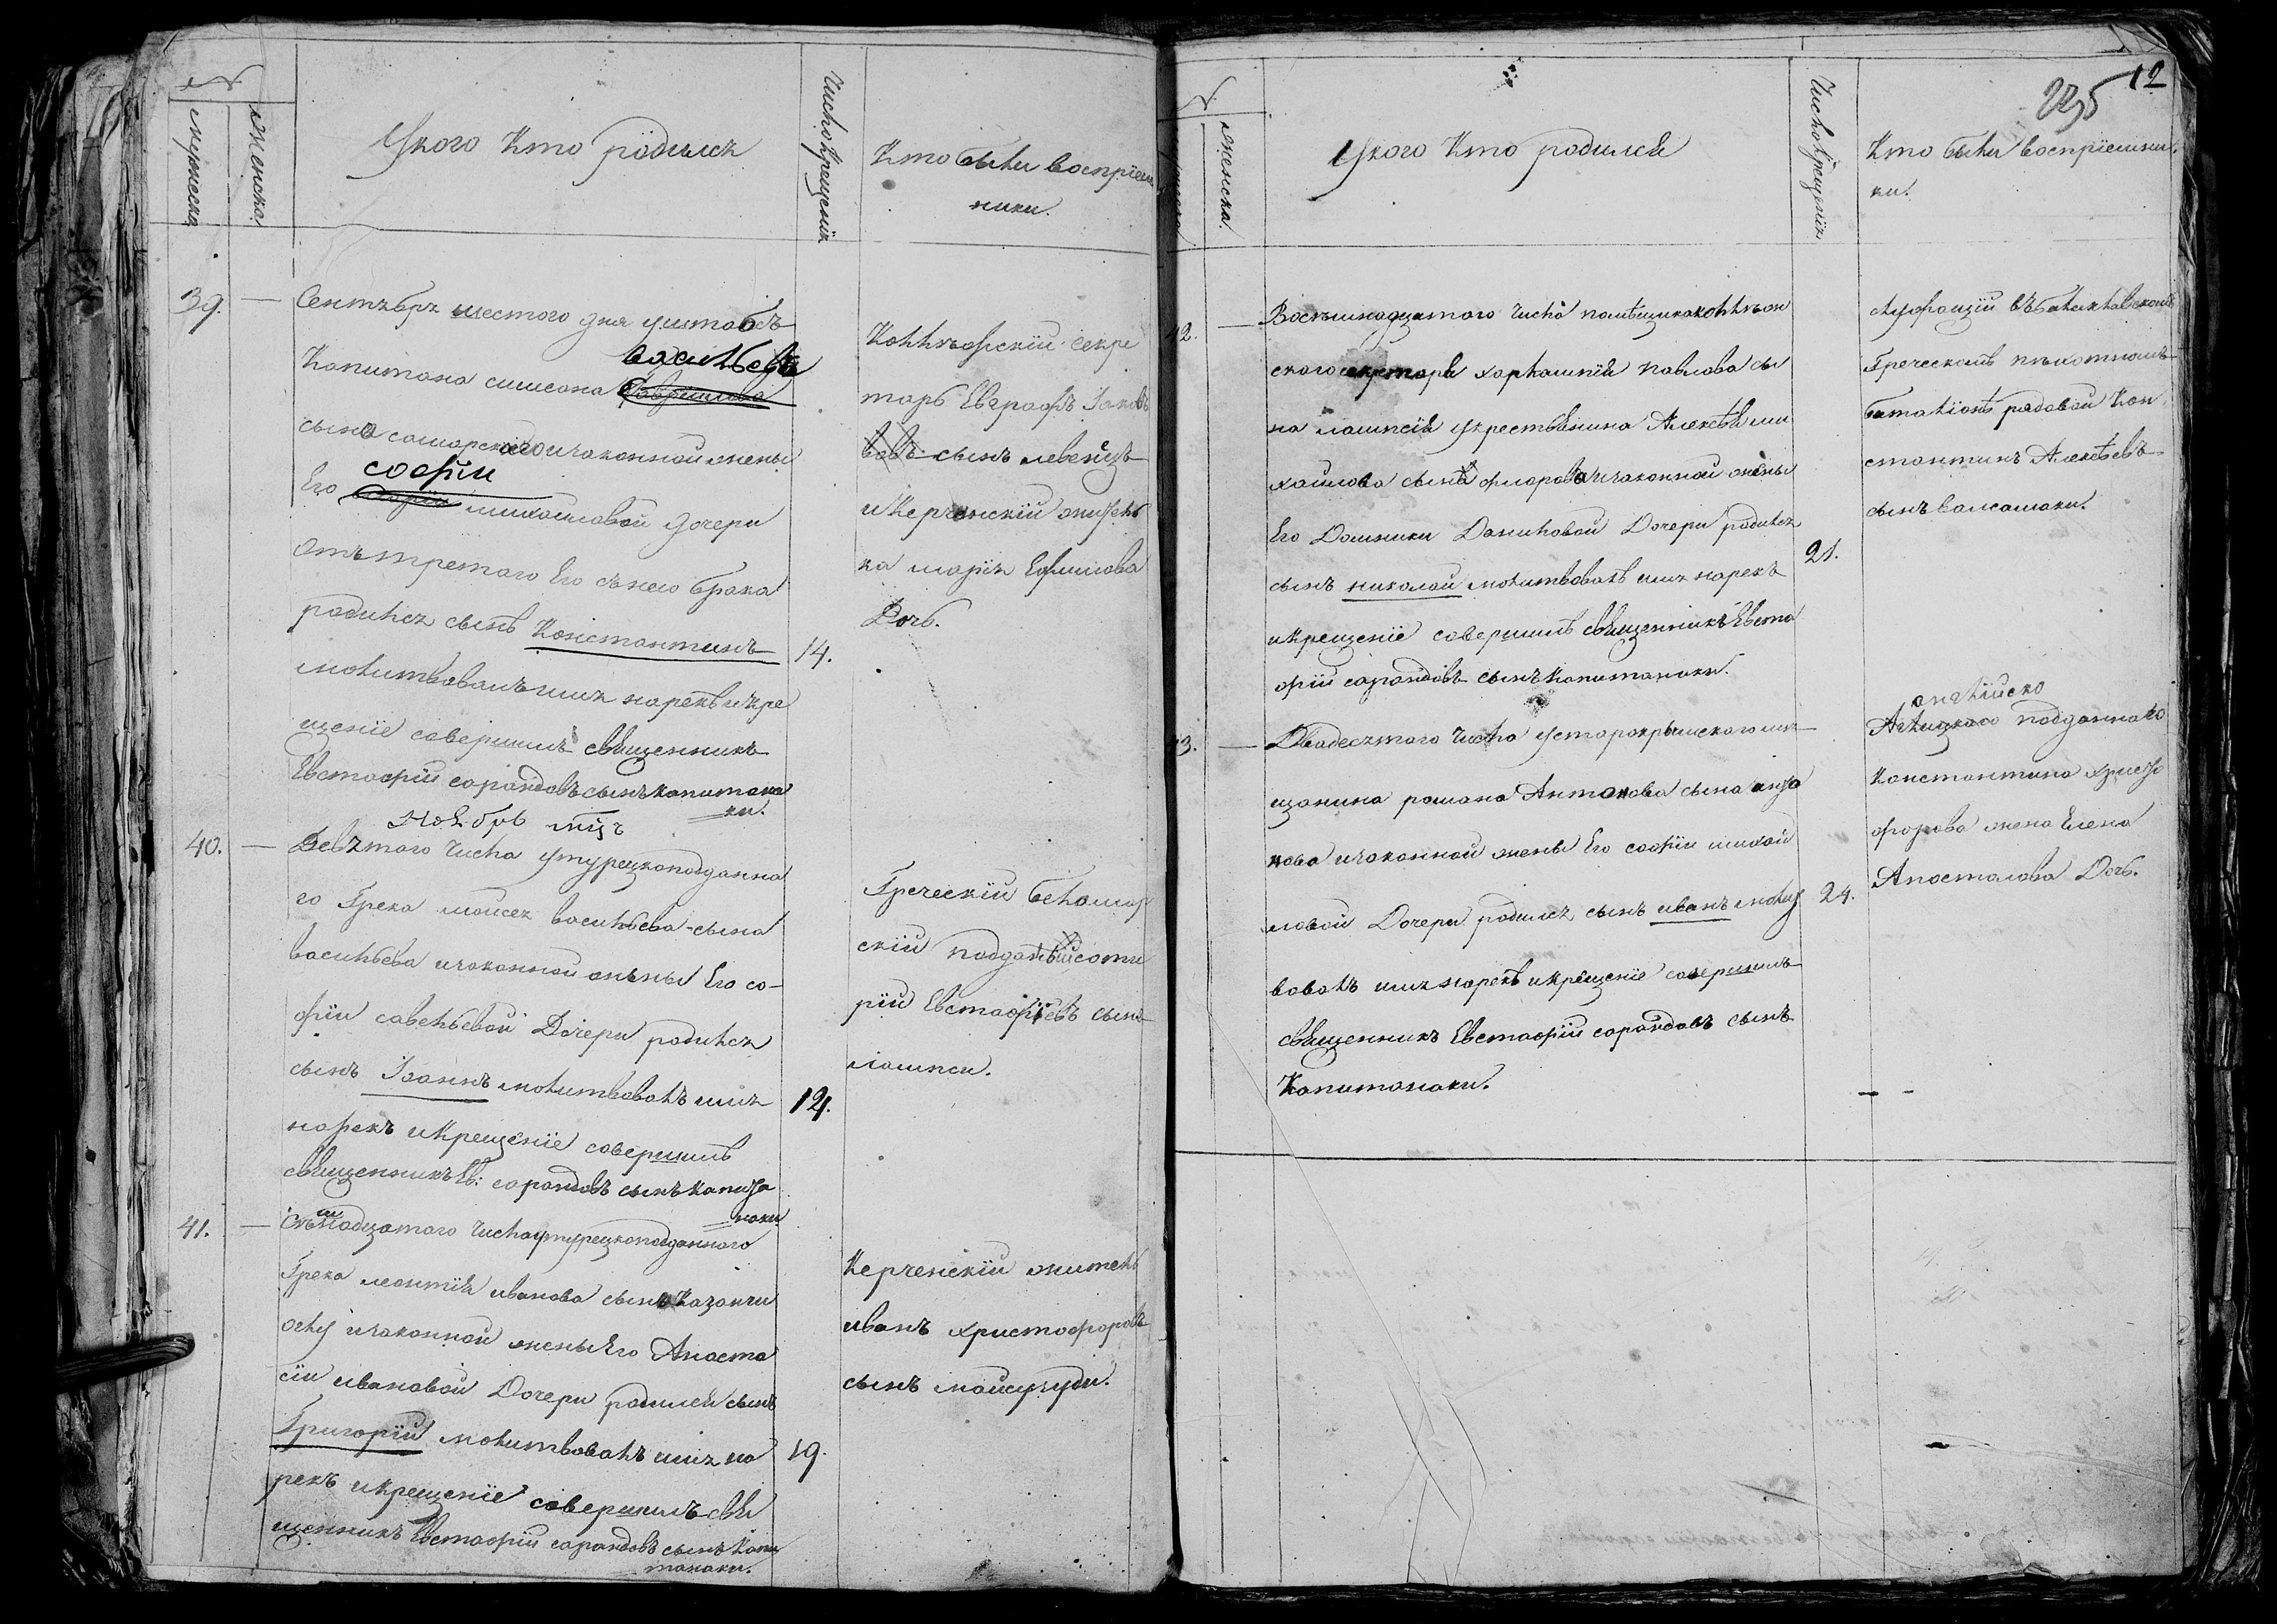 N
Мужеска
Женска.
У кого кто родился
Число крещенія
Кто были воспріем
ники.
39.
Сентября шестого дня у штабсъ
Капитана симеона васильева
сына самарскаго и законной жены
Его софіи михаиловой дочери
Отъ третого Его съ нею брака
родился сынъ Константинъ
молитвовалъ имя нарекъ и кре
щеніе совершилъ священникъ
Евстафій сарандовъ сынъ капитана
ки.
14.
Коллежскій секре
тарь Евграфъ Іаков
вовъ сынъ левенцъ
и Керченскій житель
ка марія Ефимова
Дочь.
Ноябрь мцъ
40.
Девятого числа у турецкоподданна
го Грека моисея васильева сына
васильева и законной жены Его со
фіи савельевой Дочери родился
сынъ Іоаннъ молитвовалъ имя
нарекъ и крещеніе совершилъ
священникъ Ев: сарандовъ сынъ капита
наки
12.
Греческій
скій подданый соти
рій Евстафіевъ сынъ
лампси.
41.
Съмнадцатого числа у турецкоподданного
Грека леонтія иванова сына Казанжи
оглу и законной жены Его Анаста
сіи ивановой Дочери родился сынъ
Григорій молитвовалъ имя на
рекъ и крещеніе совершилъ свя
щенникъ Евстафій сарандовъ сынъ Капи
танаки.
19.
Керченскій житель
иванъ христофоровъ
сынъ
12
N.
Женска.
У кого кто родился
Число крещенія
Кто были воспріемни
ки.
42.
Восъмнадцатого числа помѣщика коллежи
ского секретаря харлампія павлова сы
на лампсія у крестьянина Алексѣя ми
хаилова сына фларова и законной жены
Его Домники Даниловой Дочери родился
сынъ николай молитвовалъ имя нарекъ
и крещеніе совершилъ священникъ Евста
фій сарандовъ сынъ капитанаки.
21.
въ балаклавскомъ
Греческомъ пъхотномъ
баталіонѣ рядовой Кон
стантинъ Алексѣевъ
сынъ валсамаки.
43.
Двадесятого числа у старокрымского мѣ
щанина романа Антонова сына
нова и законной жены Его софіи михай
ловой Дочери родился сынъ иванъ молит
вовалъ имя нарекъ и крещеніе совершилъ
священникъ Евстафій сарандовъ сынъ
Капитанаки.
24.
англійско
подданнаго
Константина христо
форова жена Елена
Апостолова Дочь.